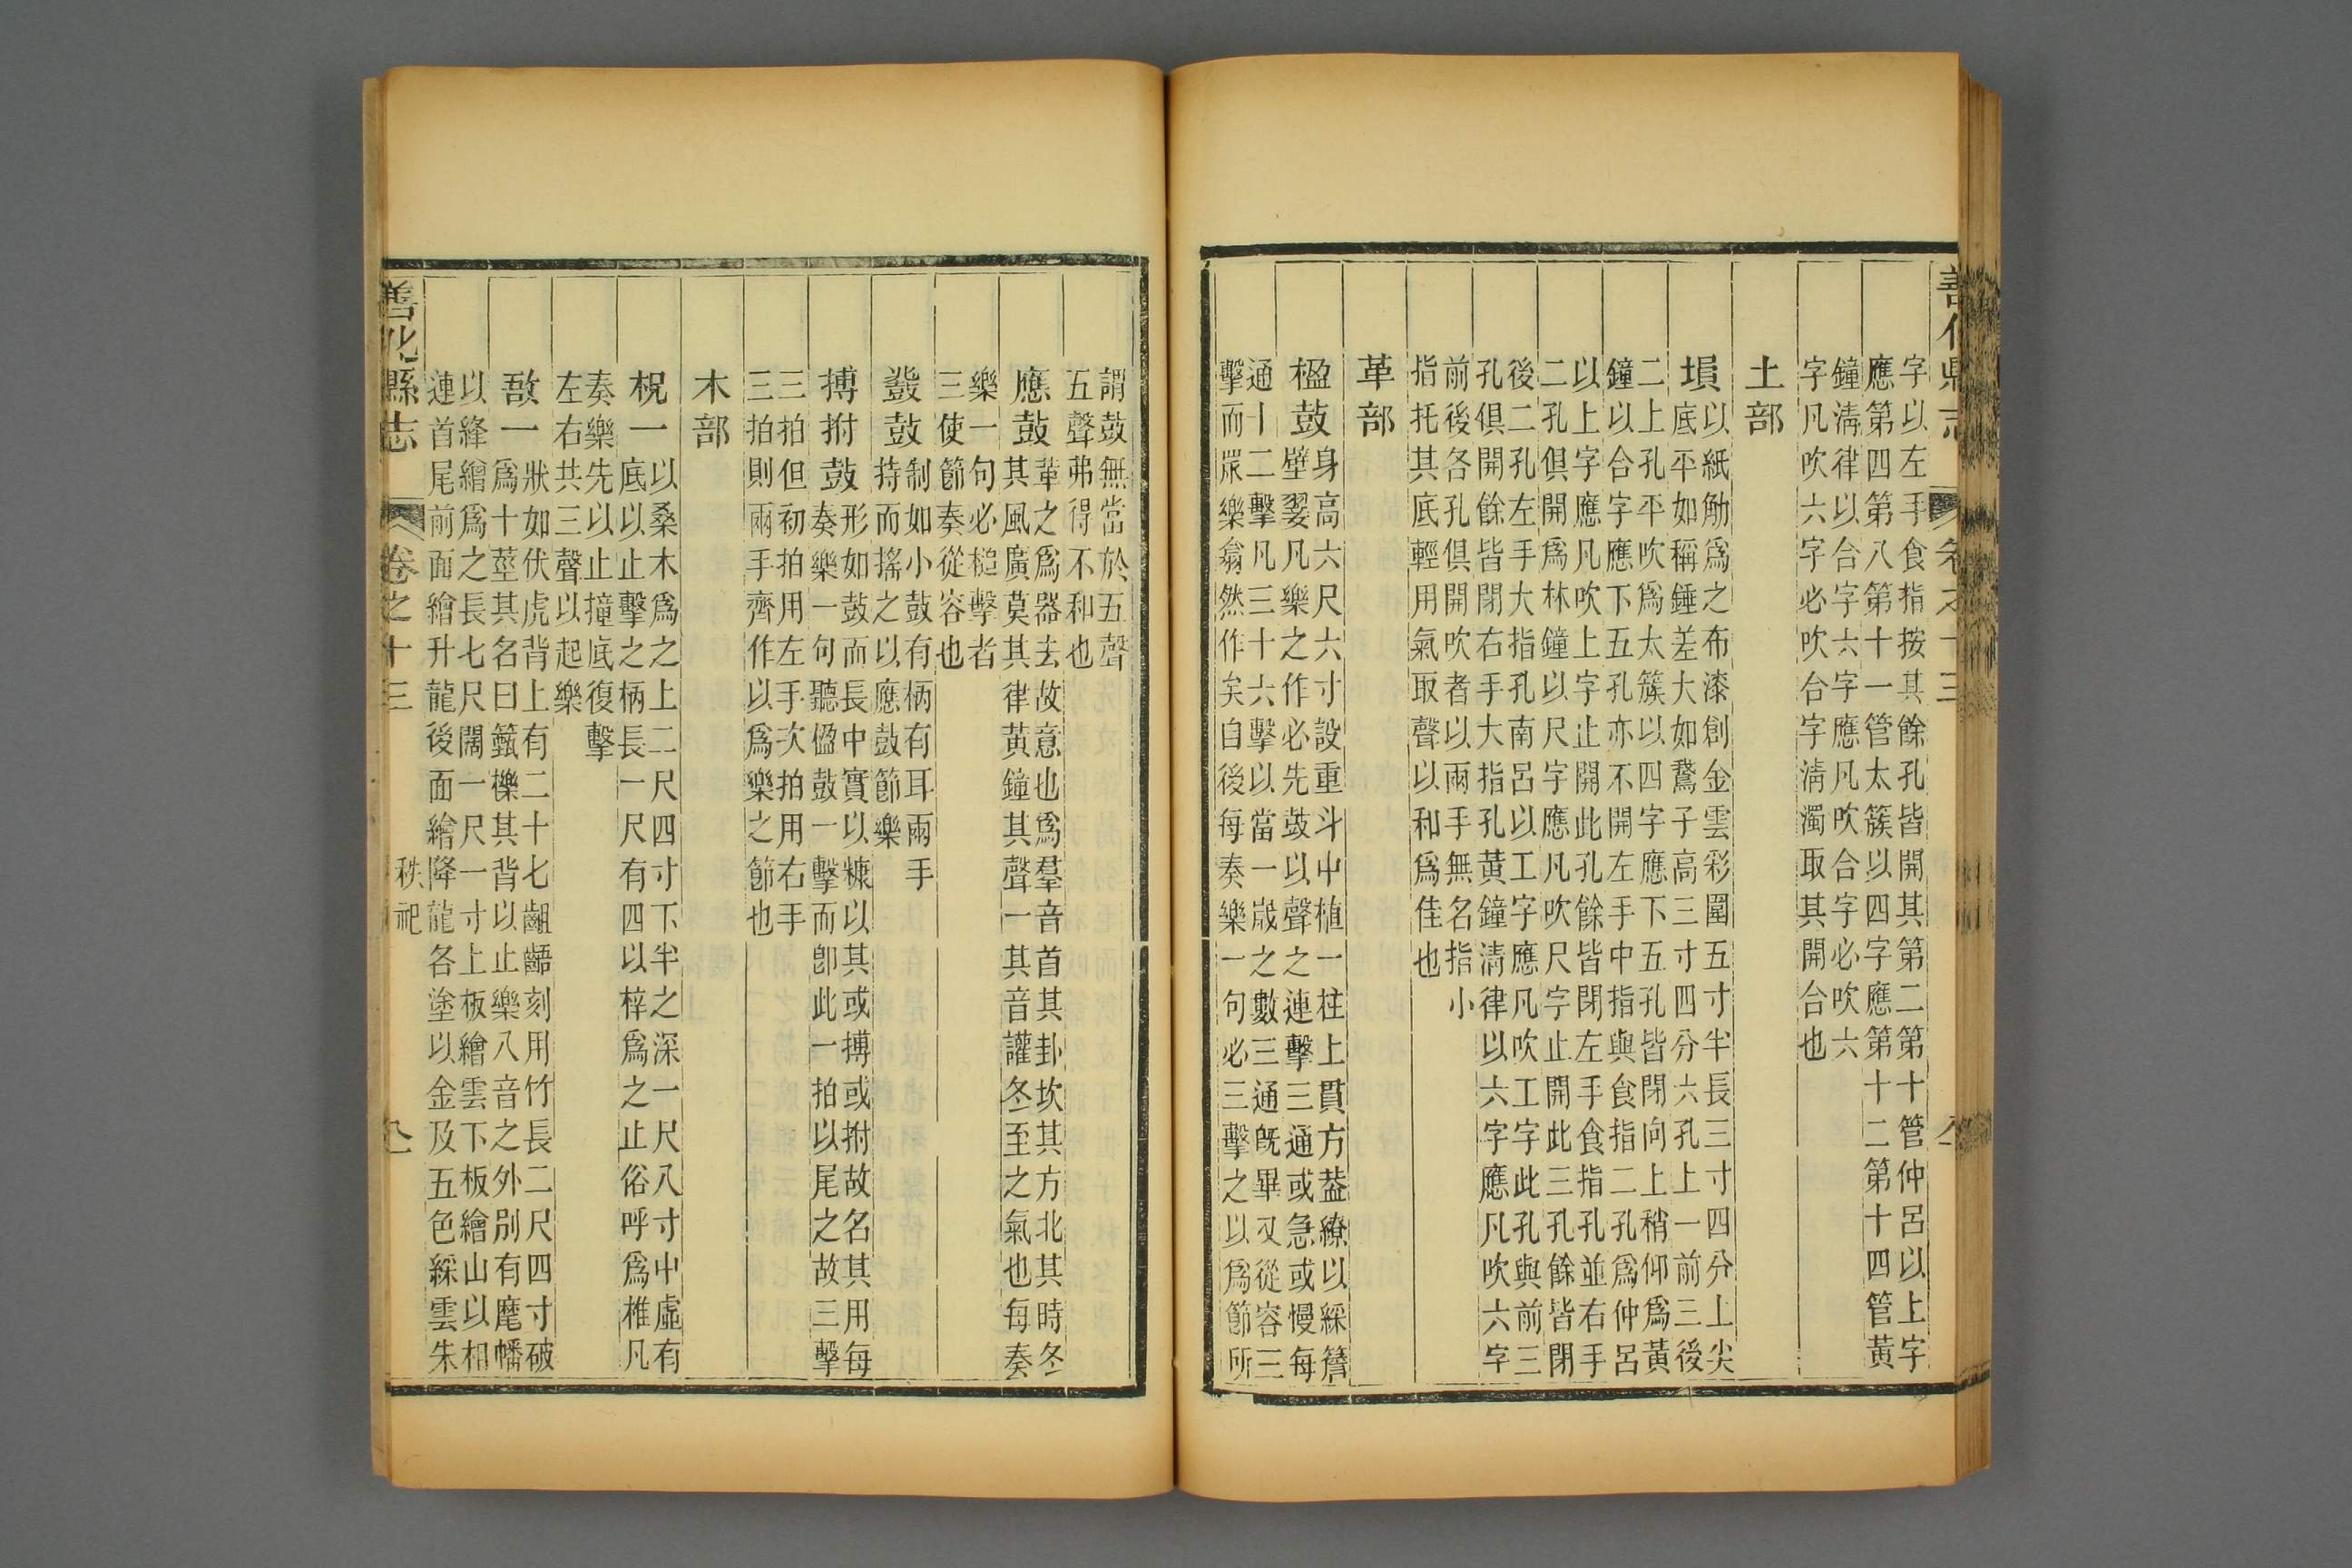 字以左手食指按其餘孔皆開其第二第十管仲呂以上字
應第四第八第十一管太簇以四字應第十二第十四管黃
鐘淸律以合字六字應凡吹合字必吹六
字凡吹六字必吹合字淸濁取其開合也
土部
塤
以紙觔爲之布漆創金雲彩圍五寸半長三寸四分上尖
底平如稱錘差大如鵞子高三寸四分六孔上一前三後
二上孔平吹爲太簇以四字應下五孔皆閉向上稍仰爲黃
鐘以合字應下五孔亦不開左手中指與食指二孔爲仲呂
以上字應凡吹上字止開此孔餘皆閉左手食指孔並右手
二孔俱開爲林鐘以尺字應凡吹尺字止開此三孔餘皆閉
後二孔左手大指孔南呂以工字應凡吹工字此孔與前三
孔俱開餘皆閉右手大指孔黃鐘淸律以六字應凡吹六字
前後各孔俱開吹者以兩手無名指小
指托其底輕用氣取聲以和爲佳也
革部
楹鼓
身高六尺六寸設重斗中植一柱上貫方葢繚以綵簷
壁翣凡樂之作必先鼓以聲之連擊三通或急或慢每
通十二擊凡三十六擊以當一歲之數三通旣畢又從容三
擊而衆樂翕然作矣自後每奏樂一句必三擊之以爲節所
謂鼓無當於五聲
五聲弗得不和也
應鼓
革之爲器去故意也爲羣音首其卦坎其方北其時冬
其風廣莫其律黃鐘其聲一其音讙冬至之氣也每奏
樂一句必槌擊者
三使節奏從容也
鼗鼓
制如小鼓有柄有耳兩手
持而搖之以應鼓節樂
搏拊鼓
形如鼓而長中實以糠以其或搏或拊故名其用每
奏樂一句聽楹鼓一擊而卽此一拍以尾之故三擊
三拍但初拍用左手次拍用右手
三拍則兩手齊作以爲樂之節也
木部
柷一
以桑木爲之上二尺四寸下半之深一尺八寸中虛有
底以止擊之柄長一尺有四以梓爲之止俗呼爲椎凡
奏樂先以止撞底復擊
左右共三聲以起樂
敔一
狀如伏虎背上有二十七齟齬刻用竹長二尺四寸破
爲十莖其名曰籈櫟其背以止樂八音之外別有麾幡
以絳繒爲之長七尺闊一尺一寸上板繪雲下板繪山以相
連首尾前面繪升龍後面繪降龍各塗以金及五色綵雲朱
善化縣志
卷之十三
秩祀